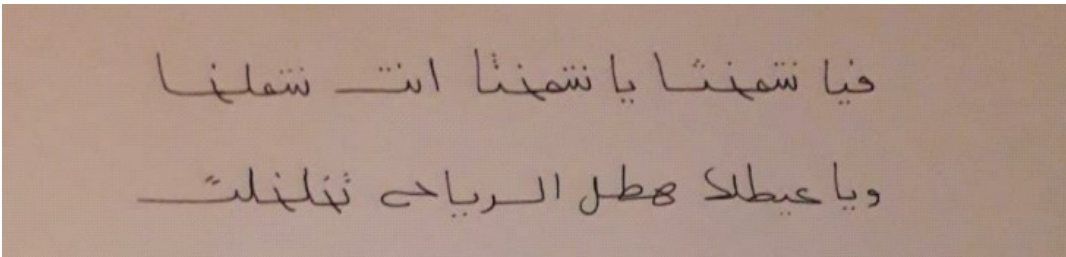 فيا شمخثا يا شمخثا انت شملخا
ويا عيطلا هطل الرياح تخلخلت